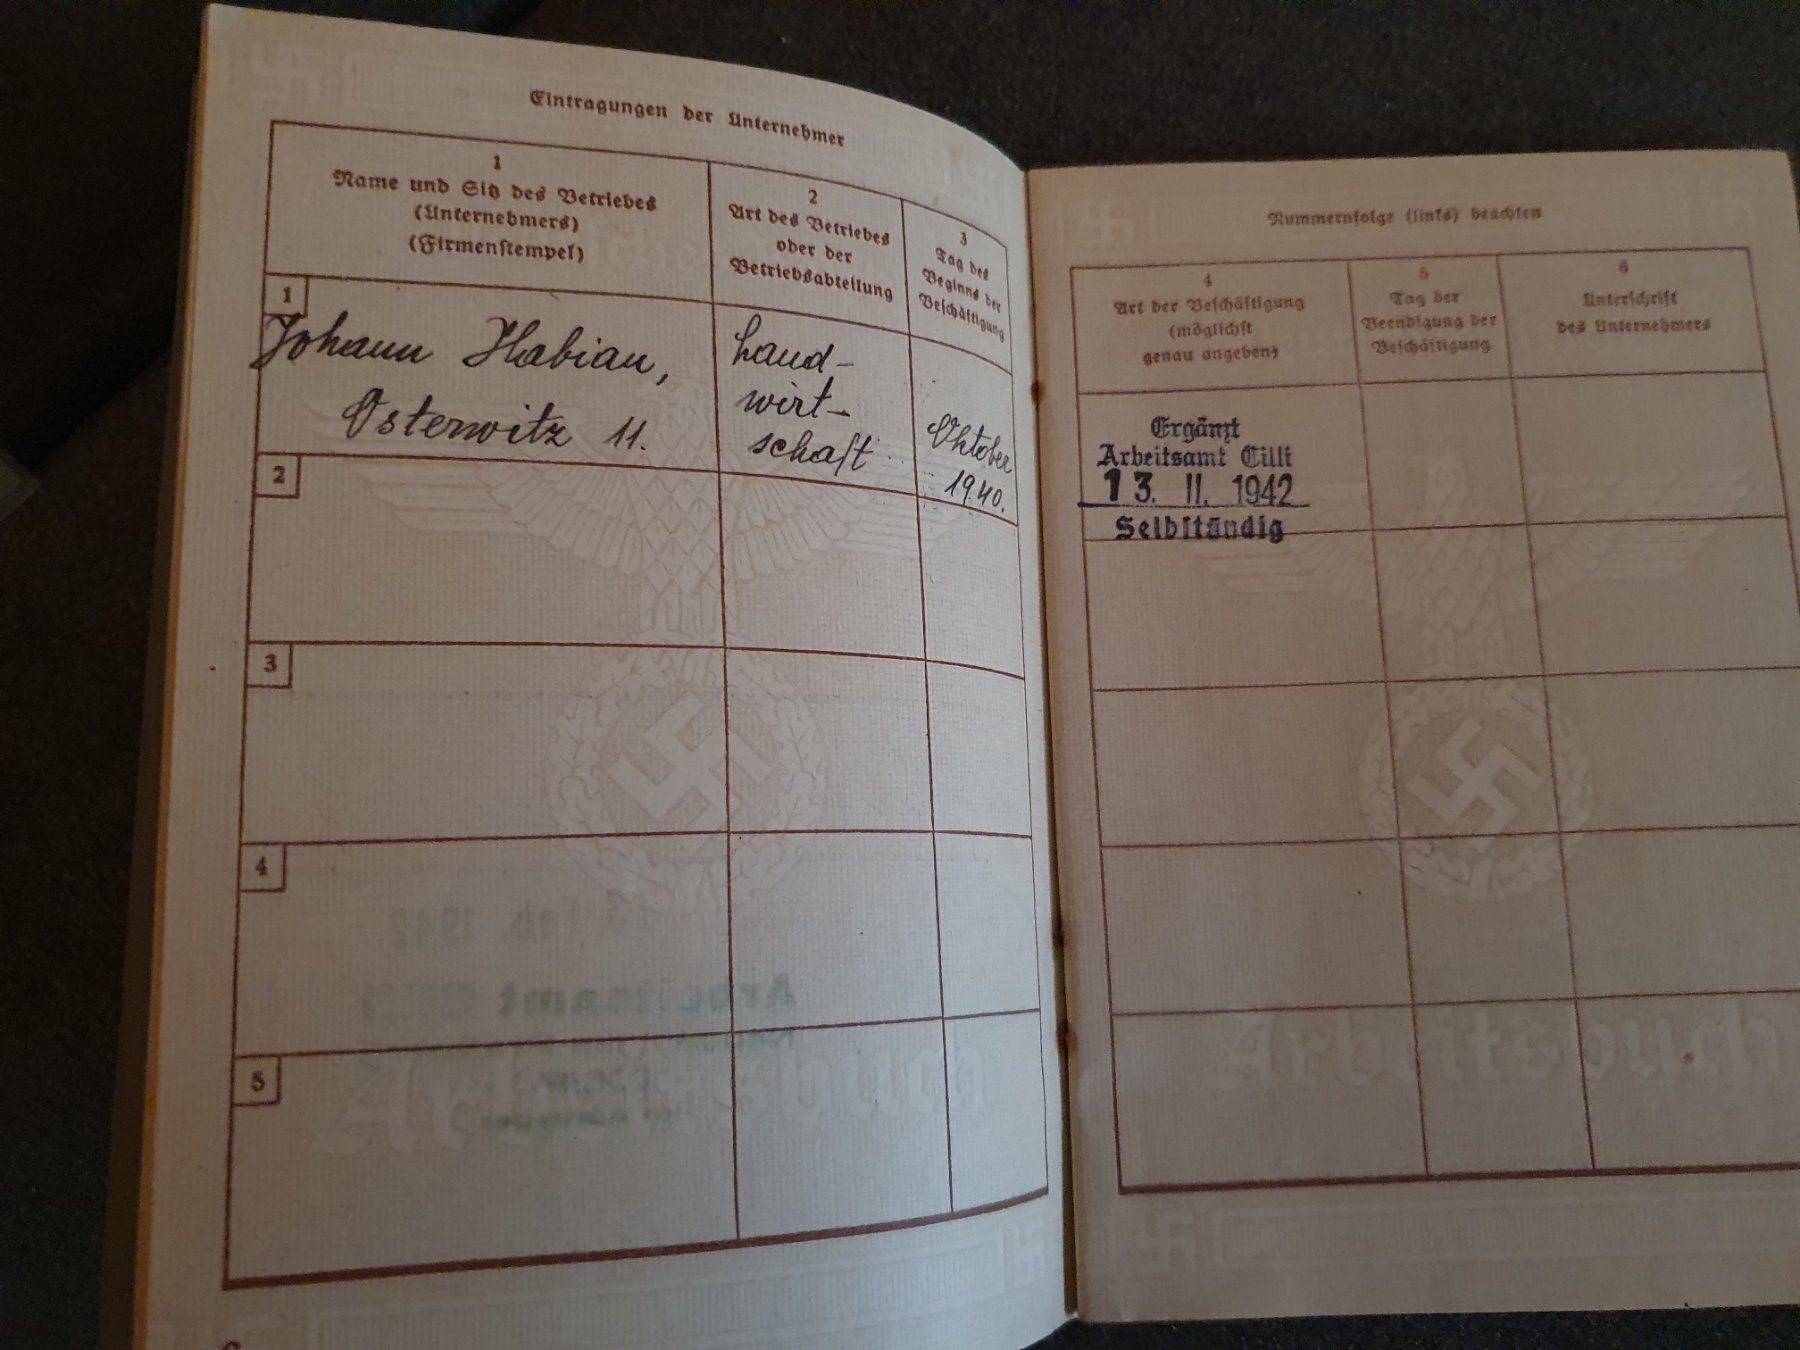 Eintragungen der Unternehmer
1
Name und Sitz des Betriebes
(Unternehmers)
(Firmenstempel)
2
Art des Betriebes
oder der
Betriebsabteilung
3
Tag des
Beginns der
Beschäftigung
1
Johann Habian,
Osterwitz 11.
Land-
wirt-
schaft
Oktober
1940.
2
3
4
5
Nummernfolge (links) beachten
4
Art der Beschäftigung
(möglichst
genau angeben)
5
Tag der
Beendigung der
Beschäftigung
6
Unterschrift
des Unternehmers
Ergänzt
Arbeitsamt Cilli
13. II. 1942
Selbständig